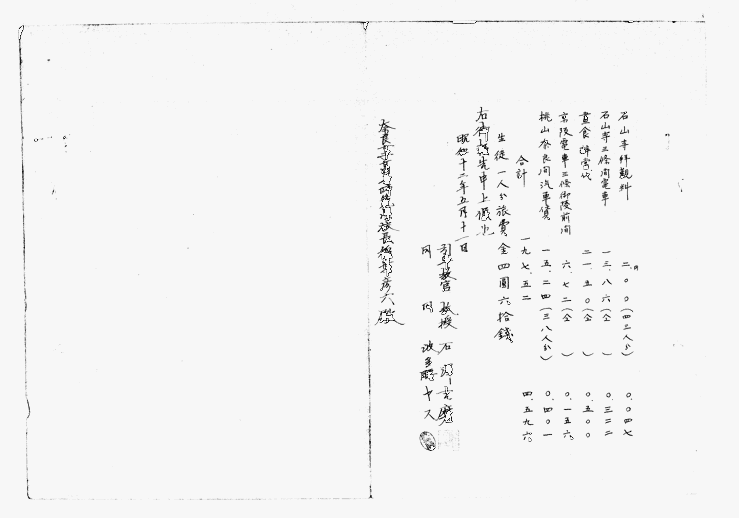 石山寺拝観料 二.〇〇(四三人分) 〇.〇四七
石山寺三條間電車 一三.八六(仝) 〇.三二二
晝食辨當代 二一.五〇(仝) 〇.五〇〇
京阪電車三條御陵前間 六.七二(仝) 〇.一五六
桃山奈良間汽車賃 一五.二四(三八人分) 〇.四〇一
合計 一九七.五二 四.五九六
生徒一人分旅費金四圓六拾錢
右御報告申上候也
昭和十二年五月十一日
引率教官 教授 石
同 同 波多 ヤス
奈良女子高等師範學校長 彦六殿